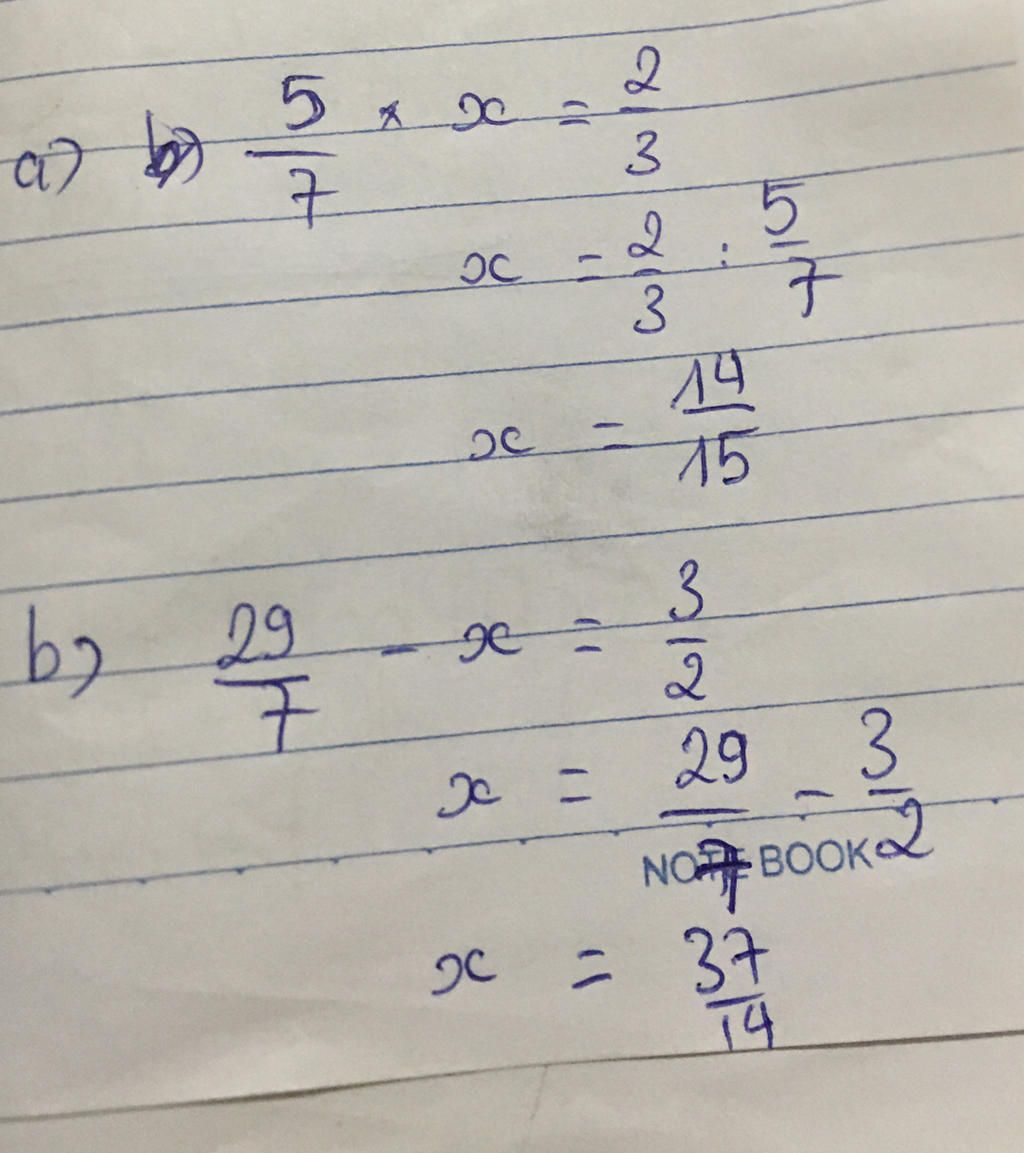 a) b) 5/7 × x = 2/3
x = 2/3 : 5/7
x = 14/15
b) 29/7 - x = 3/2
x = 29/7 - 3/2
NOTEBOOK
x = 37/14